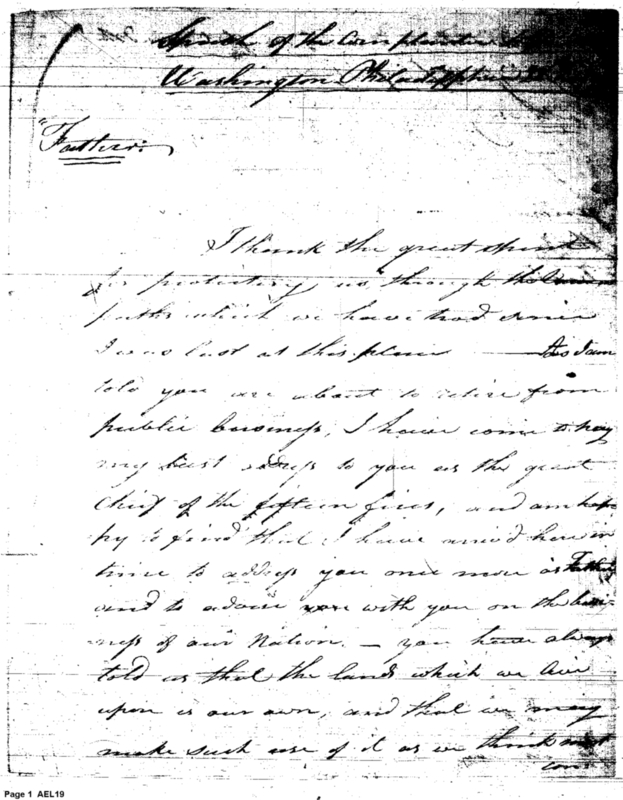 Speech of the Cornplanter to
Washington Philadelphia
"Father:
I thank the great spirit
for protecting us through the
paths which we have trod since
I was last at this place As I am
told you are about to retire from
public business, I have come to pay
my last address to you as the great
Chief of the fifteen fires, and am hap
py to find that I have arrived here in
time to address you once more as Father
and to advise with you on the busi
ness of our Nation. — You have always
told us that the lands which we live
upon is our own, and that we may
make such use of it as we think most
Page 1 AEL19